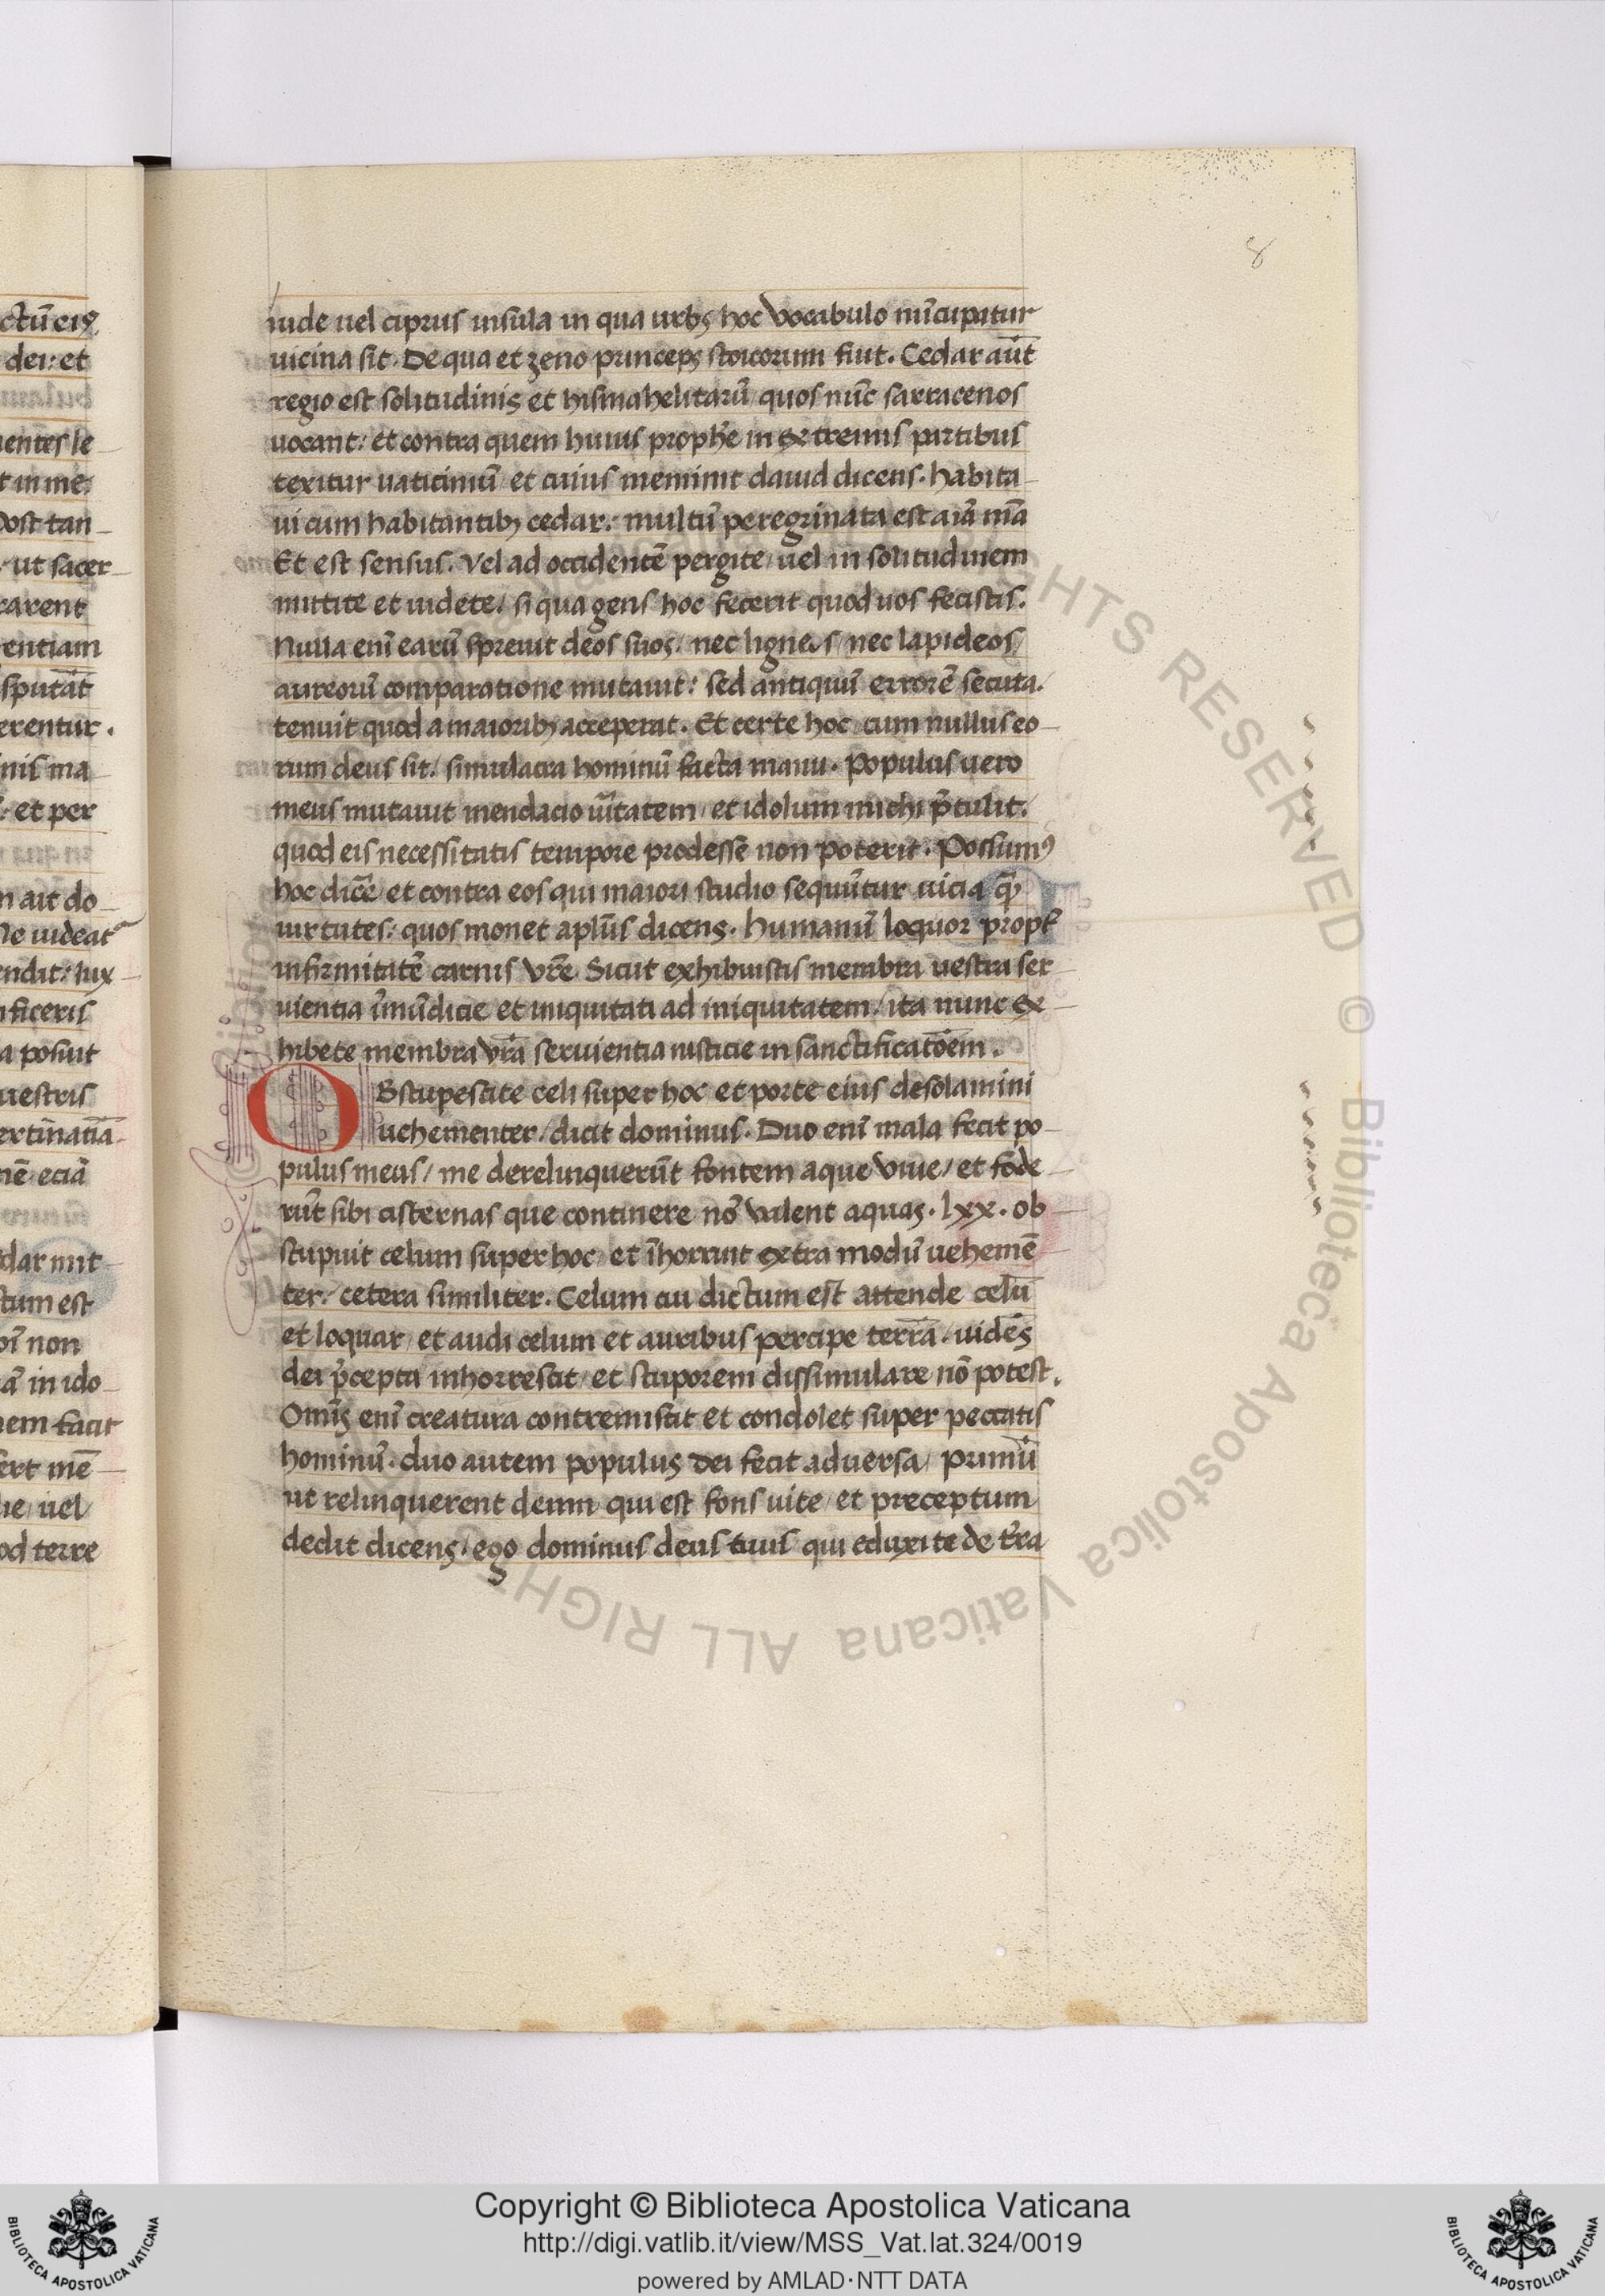 8
ctū eis
iude uel ciprus insula in qua urbs hoc vocabulo nūcupatur
dei: et
uicina sit. De qua et zeno princeps stoicorum fiut. Cedar aūt
regio est solitudinis et hismahelitarū quos nūc sarracenos
uentes le
uocant: et contra quem huius prophē in extremis partibus
t in me
texitur uaticiniū et cuius meminit dauid dicens. habita
Post tan
ui cum habitantibȝ cedar: multū peregrinata est aīa mā
ut sacer
Et est sensus. Vel ad occidentē pergite uel in solitudinem
rarent
mittite et uidete/ si qua gens hoc fecerit quod uos fecistis.
entiam
Nulla enī earū spreuit deos suos/ nec ligneos/ nec lapideos/
sputāt
aureorū comparatione mutauit: sed antiquū errorē secuta.
erentur.
tenuit quod a maioribȝ acceperat. Et certe hoc cum nullus eo
nis ma
rum deus sit/ simulacra hominū facta manu. Populus uero
et per
meus mutauit mendacio uītatem/ et idolum michi p̄tulit/
quod eis necessitatis tempore prodesse non poterit. Possumꝰ
n ait do
hoc dicē et contra eos qui maiori studio sequūtur uicia q̄
Ne uideat
uirtutes: quos monet aplūs dicens. humanū loquor propt
endit: lux
infirmitatē carnis vrē. Sicut exhibuistis membra uestra ser
ficeris
uientia īmūdicie et iniquitati ad iniquitatem/ ita nunc ex
a posuit
hibete membra vrā seruientia iusticie in sanctificatōem.
uestris
OBstupescite celi super hoc et porte eius desolamini
ertinatiā
uehementer/ dicit dominus. Duo enī mala fecit po
nē eciā
pulus meus/ me derelinquerūt fontem aque viue/ et fode
rūt sibi cisternas que continere nō valent aquas. lxx. ob
dar mit
stupuit celum super hoc et īhorruit extra modū uehemē
tum est
ter/ cetera similiter. Celum cui dictum est attende celū
oī non
et loquar et audi celum et auribus percipe terrā. uidēs
ā in ido
dei p̄cepta inhorrescit et stuporem dissimulare nō potest.
nem facit
Omīs enī creatura contremiscit et condolet super peccatis
ert mē
hominū. duo autem populus dei fecit aduersa/ primū
ie/ uel
ut relinquerent deum qui est fons uite/ et preceptum
od terre
dedit dicens. ego dominus deus tuus qui eduxi te de t̄ra
© Biblioteca Apostolica Vaticana ALL RIGHTS RESERVED
Copyright © Biblioteca Apostolica Vaticana
http://digi.vatlib.it/view/MSS_Vat.lat.324/0019
powered by AMLAD·NTT DATA
BIBLIOTECA APOSTOLICA VATICANA
BIBLIOTECA APOSTOLICA VATICANA